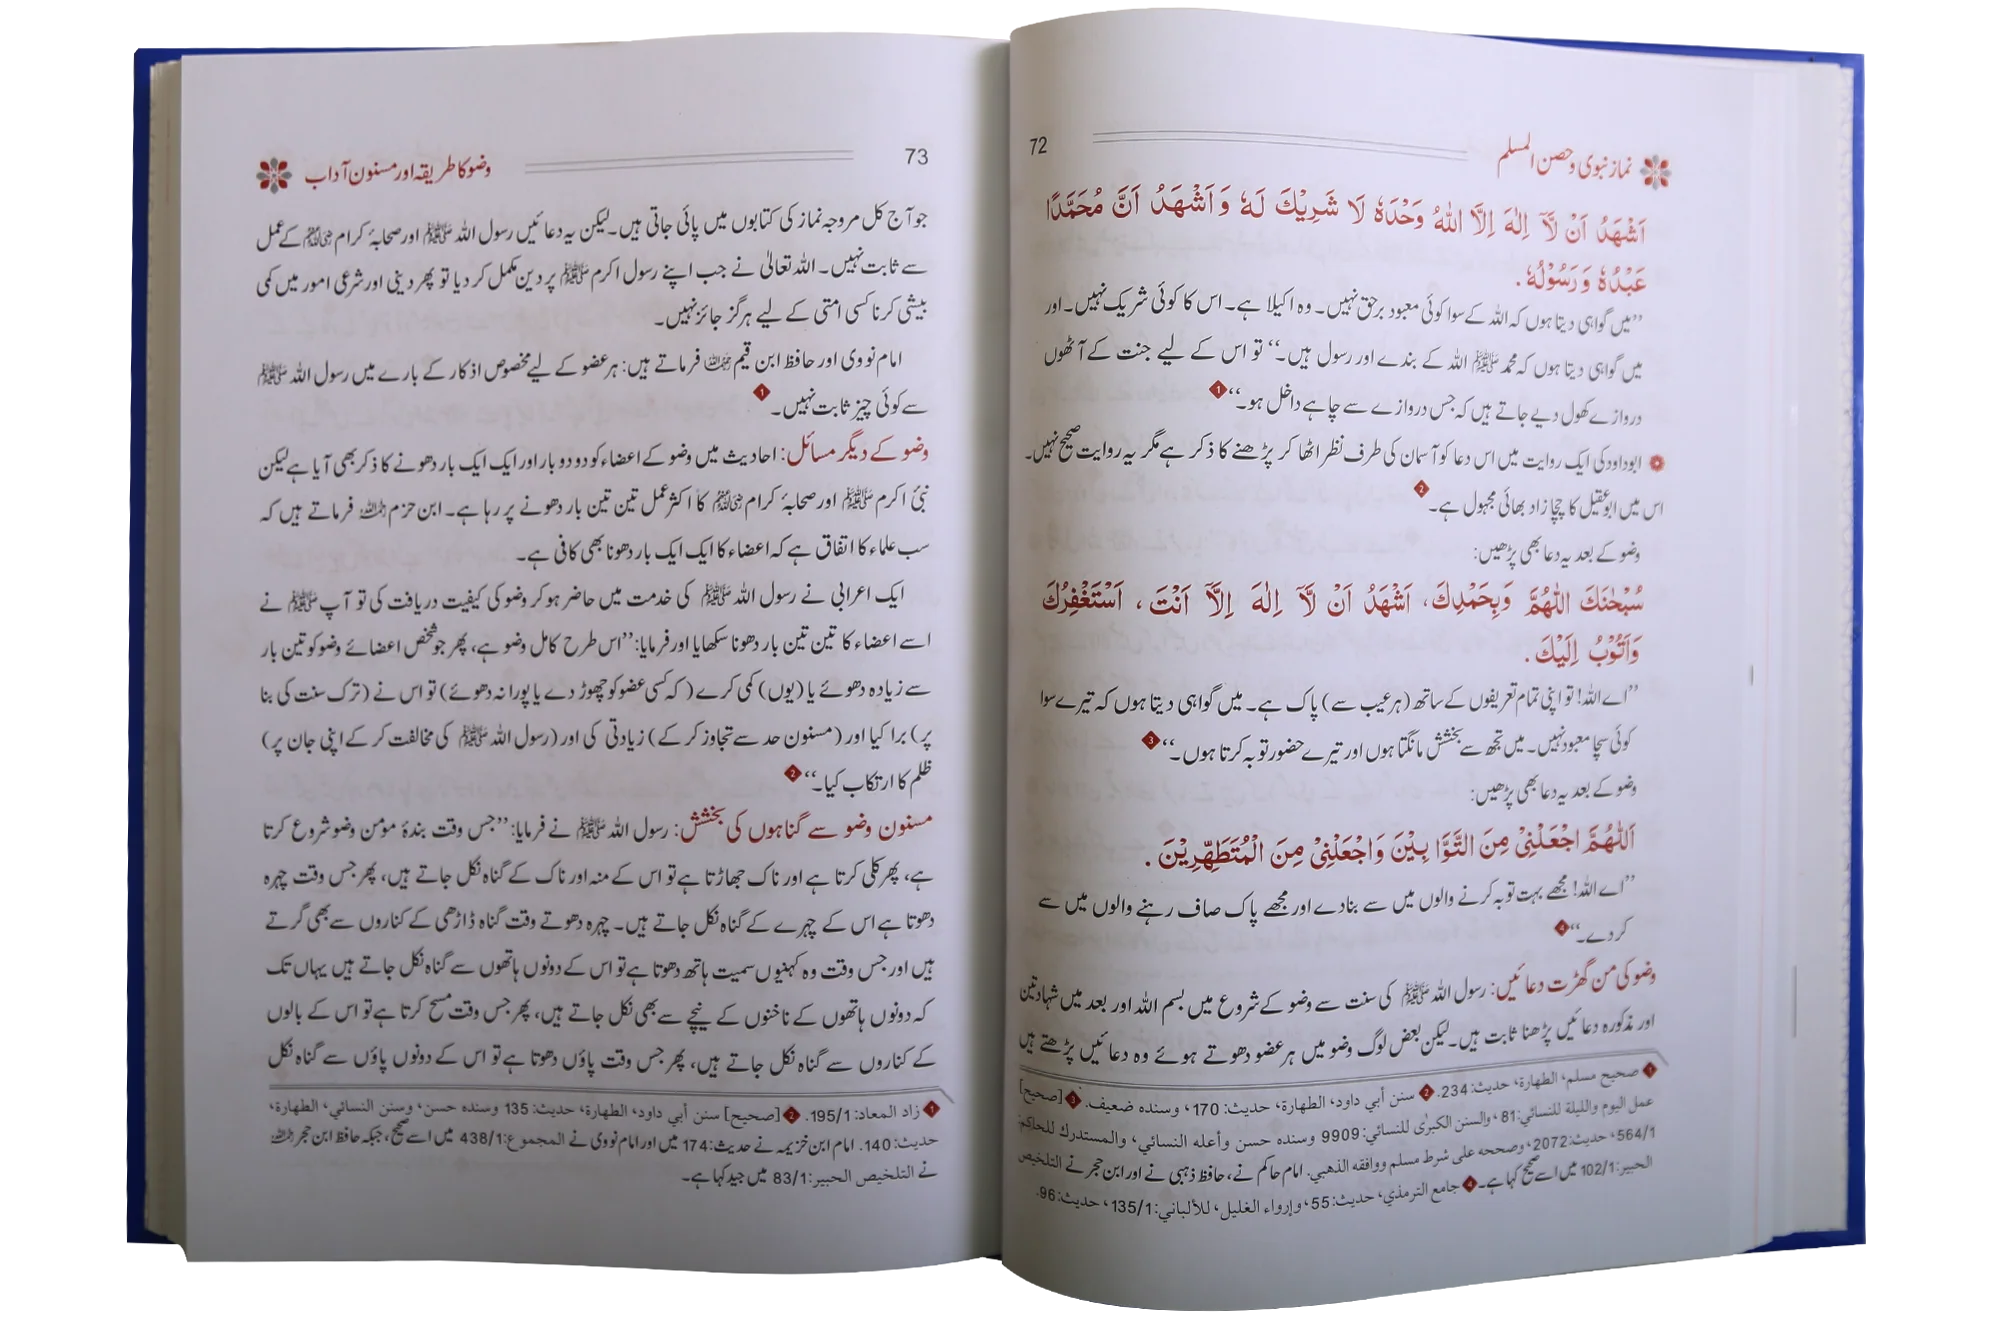 نماز نبوی و حصن المسلم
72
اَشْهَدُ اَنْ لَّآ اِلٰهَ اِلَّا اللّٰهُ وَحْدَهٗ لَا شَرِيْكَ لَهٗ وَاَشْهَدُ اَنَّ مُحَمَّدًا
عَبْدُهٗ وَرَسُوْلُهٗ.
”میں گواہی دیتا ہوں کہ اللہ کے سوا کوئی معبود برحق نہیں۔ وہ اکیلا ہے۔ اس کا کوئی شریک نہیں۔ اور
میں گواہی دیتا ہوں کہ محمد ﷺ اللہ کے بندے اور رسول ہیں۔“ تو اس کے لیے جنت کے آٹھوں
دروازے کھول دیے جاتے ہیں کہ جس دروازے سے چاہے داخل ہو۔“ 1
ابوداود کی ایک روایت میں اس دعا کو آسمان کی طرف نظر اٹھا کر پڑھنے کا ذکر ہے مگر یہ روایت صحیح نہیں۔
اس میں ابوعقیل کا چچا زاد بھائی مجہول ہے۔ 2
وضو کے بعد یہ دعا بھی پڑھیں:
سُبْحٰنَكَ اللّٰهُمَّ وَبِحَمْدِكَ، اَشْهَدُ اَنْ لَّآ اِلٰهَ اِلَّآ اَنْتَ، اَسْتَغْفِرُكَ
وَاَتُوْبُ اِلَيْكَ.
”اے اللہ! تو اپنی تمام تعریفوں کے ساتھ (ہر عیب سے) پاک ہے۔ میں گواہی دیتا ہوں کہ تیرے سوا
کوئی سچا معبود نہیں۔ میں تجھ سے بخشش مانگتا ہوں اور تیرے حضور توبہ کرتا ہوں۔“ 3
وضو کے بعد یہ دعا بھی پڑھیں:
اَللّٰهُمَّ اجْعَلْنِيْ مِنَ التَّوَّابِيْنَ وَاجْعَلْنِيْ مِنَ الْمُتَطَهِّرِيْنَ.
”اے اللہ! مجھے بہت توبہ کرنے والوں میں سے بنا دے اور مجھے پاک صاف رہنے والوں میں سے
کر دے۔“ 4
وضو کی من گھڑت دعائیں: رسول اللہ ﷺ کی سنت سے وضو کے شروع میں بسم اللہ اور بعد میں شہادتین
اور مذکورہ دعائیں پڑھنا ثابت ہیں۔ لیکن بعض لوگ وضو میں ہر عضو دھوتے ہوئے وہ دعائیں پڑھتے ہیں
1 صحيح مسلم، الطهارة، حديث: 234. 2 سنن أبي داود، الطهارة، حديث: 170، وسنده ضعيف. 3 [صحيح]
عمل اليوم والليلة للنسائي: 81، والسنن الكبرٰى للنسائي: 9909 وسنده حسن وأعله النسائي، والمستدرك للحاكم:
564/1، حديث: 2072، وصححه على شرط مسلم ووافقه الذهبي. امام حاکم نے، حافظ ذہبی نے اور ابن حجر نے التلخيص
الحبير: 102/1 میں اسے صحیح کہا ہے۔ 4 جامع الترمذي، حديث: 55، وإرواء الغليل، للألباني: 135/1، حديث: 96.
73
وضو کا طریقہ اور مسنون آداب
جو آج کل مروجہ نماز کی کتابوں میں پائی جاتی ہیں۔ لیکن یہ دعائیں رسول اللہ ﷺ اور صحابۂ کرام رضی اللہ عنہم کے عمل
سے ثابت نہیں۔ اللہ تعالیٰ نے جب اپنے رسول اکرم ﷺ پر دین مکمل کر دیا تو پھر دینی اور شرعی امور میں کمی
بیشی کرنا کسی امتی کے لیے ہرگز جائز نہیں۔
امام نووی اور حافظ ابن قیم رحمہما اللہ فرماتے ہیں: ہر عضو کے لیے مخصوص اذکار کے بارے میں رسول اللہ ﷺ
سے کوئی چیز ثابت نہیں۔ 1
وضو کے دیگر مسائل: احادیث میں وضو کے اعضاء کو دو دو بار اور ایک ایک بار دھونے کا ذکر بھی آیا ہے لیکن
نبیٔ اکرم ﷺ اور صحابۂ کرام رضی اللہ عنہم کا اکثر عمل تین تین بار دھونے پر رہا ہے۔ ابن حزم رحمہ اللہ فرماتے ہیں کہ
سب علماء کا اتفاق ہے کہ اعضاء کا ایک ایک بار دھونا بھی کافی ہے۔
ایک اعرابی نے رسول اللہ ﷺ کی خدمت میں حاضر ہو کر وضو کی کیفیت دریافت کی تو آپ ﷺ نے
اسے اعضاء کا تین تین بار دھونا سکھایا اور فرمایا: ”اس طرح کامل وضو ہے، پھر جو شخص اعضائے وضو کو تین بار
سے زیادہ دھوئے یا (یوں) کمی کرے (کہ کسی عضو کو چھوڑ دے یا پورا نہ دھوئے) تو اس نے (ترک سنت کی بنا
پر) برا کیا اور (مسنون حد سے تجاوز کر کے) زیادتی کی اور (رسول اللہ ﷺ کی مخالفت کر کے اپنی جان پر)
ظلم کا ارتکاب کیا۔“ 2
مسنون وضو سے گناہوں کی بخشش: رسول اللہ ﷺ نے فرمایا: ”جس وقت بندۂ مومن وضو شروع کرتا
ہے، پھر کلی کرتا ہے اور ناک جھاڑتا ہے تو اس کے منہ اور ناک کے گناہ نکل جاتے ہیں، پھر جس وقت چہرہ
دھوتا ہے اس کے چہرے کے گناہ نکل جاتے ہیں۔ چہرہ دھوتے وقت گناہ ڈاڑھی کے کناروں سے بھی گرتے
ہیں اور جس وقت وہ کہنیوں سمیت ہاتھ دھوتا ہے تو اس کے دونوں ہاتھوں سے گناہ نکل جاتے ہیں یہاں تک
کہ دونوں ہاتھوں کے ناخنوں کے نیچے سے بھی نکل جاتے ہیں، پھر جس وقت مسح کرتا ہے تو اس کے بالوں
کے کناروں سے گناہ نکل جاتے ہیں، پھر جس وقت پاؤں دھوتا ہے تو اس کے دونوں پاؤں سے گناہ نکل
1 زاد المعاد: 195/1. 2 [صحيح] سنن أبي داود، الطهارة، حديث: 135 وسنده حسن، وسنن النسائي، الطهارة،
حديث: 140. امام ابن خزیمہ نے حدیث: 174 میں اور امام نووی نے المجموع: 438/1 میں اسے صحیح، جبکہ حافظ ابن حجر رحمہ اللہ
نے التلخيص الحبير: 83/1 میں جید کہا ہے۔